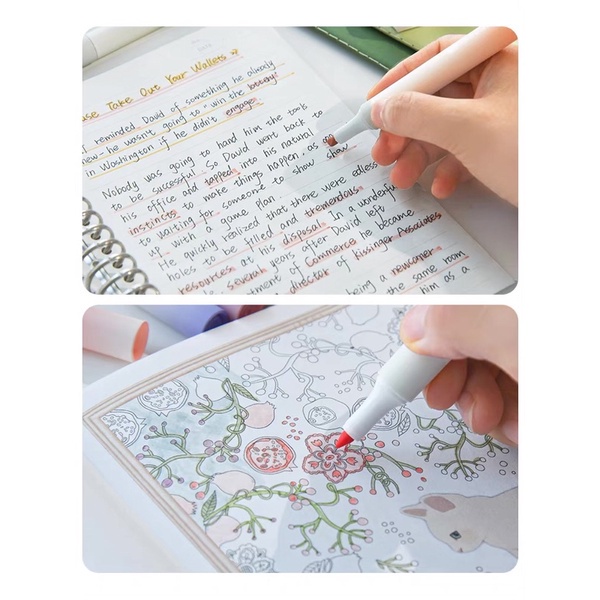 use Take Out Your Wallets
I reminded David of something he already
new. he wasn't going to "win the lottery"
in Washington if he didn't engage.
Nobody was going to hand him the tools
to be successful. So David went back to
his office and tapped into his natural
instincts to make things happen, as op
to waiting for someone to show show
up with a game plan.
He quickly realized that there were edless
holes to be filled and tremendous
resources at his disposal. In a wonderful
several years after David left
tment of Commerce he became
director of Kissinger Associates
being a newcomer
the same room
him as a